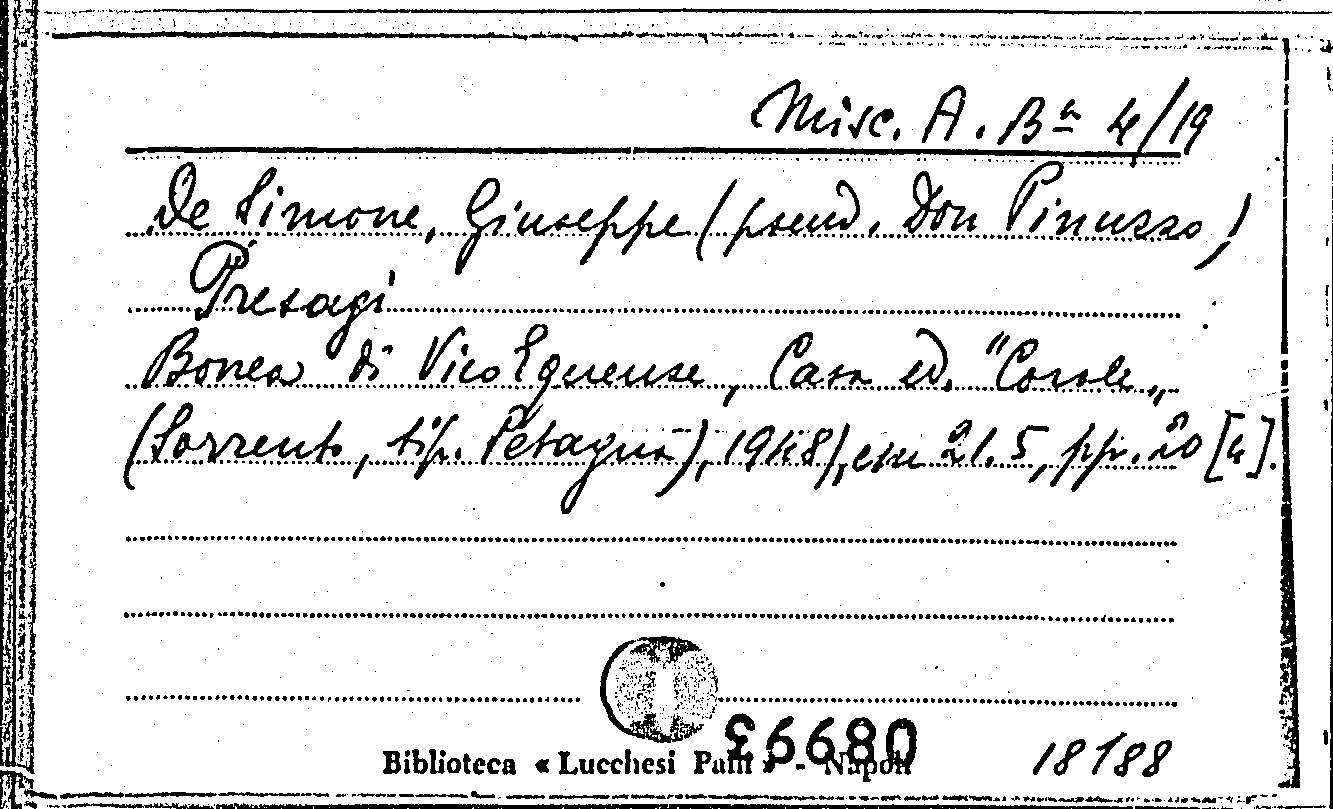 Misc. A. Bª 4/19
De Simone, Giuseppe (pseud. Don Pinuzzo)
Presagi
Bonea di Vico Equense, Casa ed. "Corole„
(Sorrento, tip. Petagna), 1948), cm 21.5, pp. 20 [4].
Biblioteca « Lucchesi Palli » - Napoli
18188